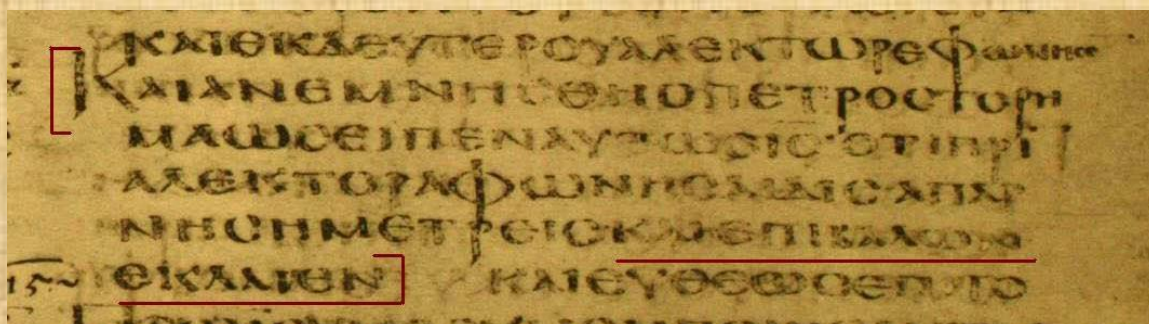 ΚΑΙΕΚΔΕΥΤΕΡΟΥΑΛΕΚΤΩΡΕΦΩΝΗϹΕ
ΚΑΙΑΝΕΜΝΗϹΘΗΟΠΕΤΡΟϹΤΟΡΗ
ΜΑΩϹΕΙΠΕΝΑΥΤΩΟΙ̅Ϲ̅ΟΤΙΠΡΙ̅
ΑΛΕΚΤΟΡΑΦΩΝΗϹΑΙΔΙϹΑΠΑΡ
ΝΗϹΗΜΕΤΡΕΙϹΚΑΙΕΠΙΒΑΛΩΝ
ΕΚΛΑΙΕΝ ΚΑΙΕΥΘΕΩϹΕΠΙΤΟ